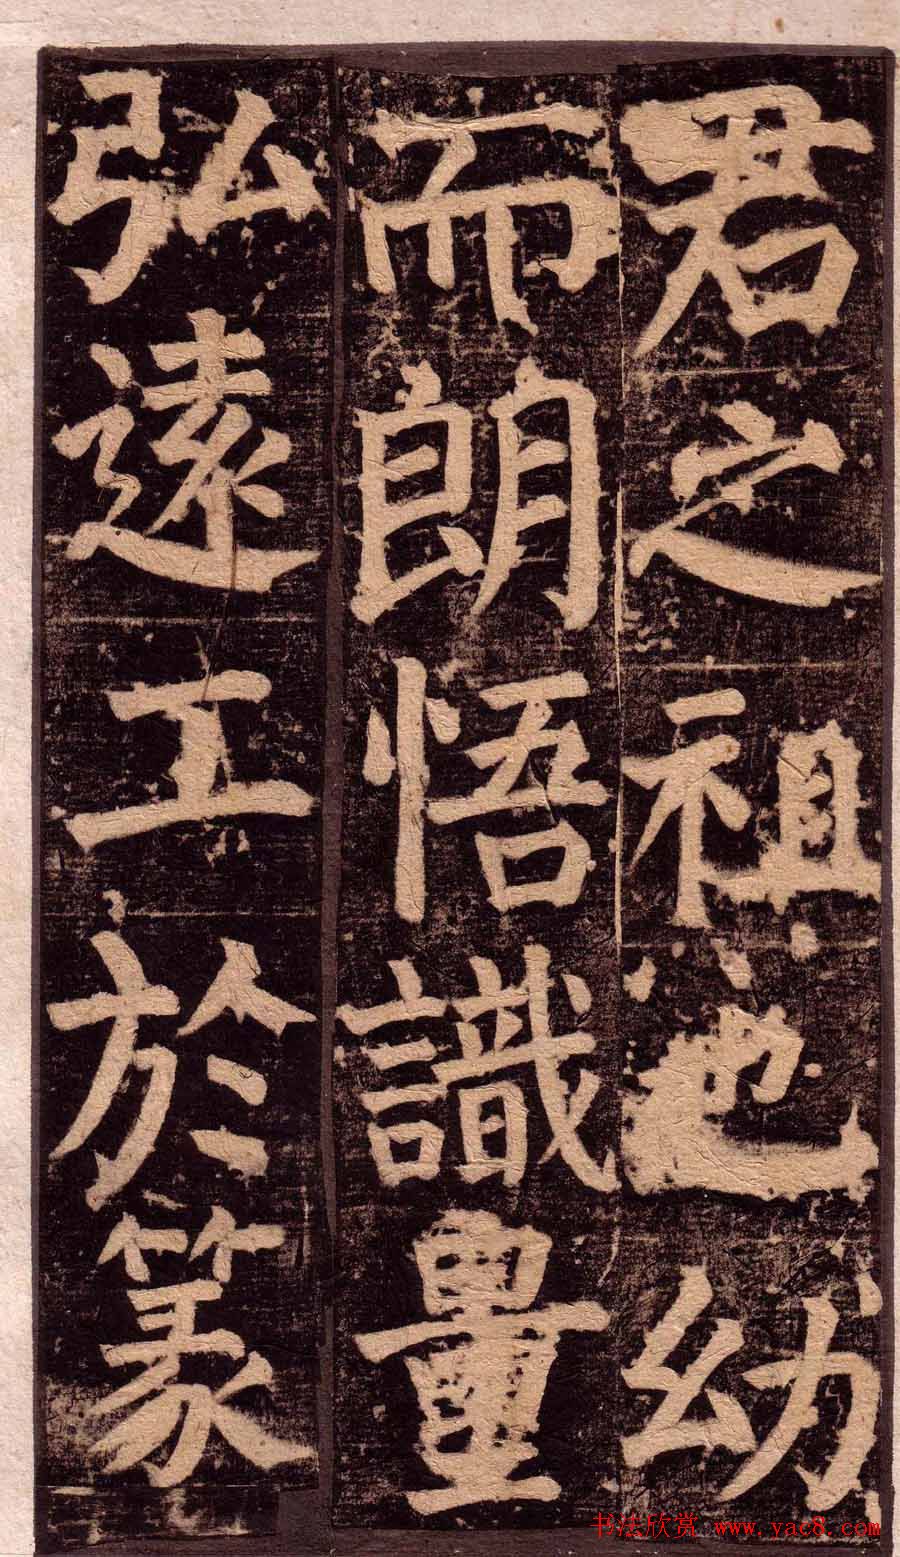 君之祖也幼
而朗悟識量
弘遠工於篆
书法欣赏 www.yac8.com